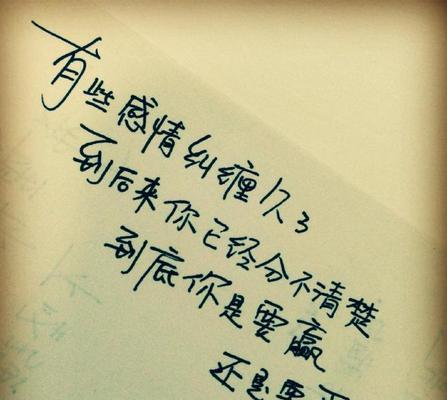 有些感情纠缠久了
到后来你已经分不清楚
到底你是要赢
还是要